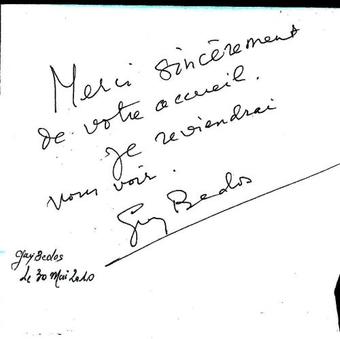 Merci sincèrement
de votre accueil.
Je reviendrai
vous voir.
Guy Bedos
Guy Bedos
Le 30 Mai 2010